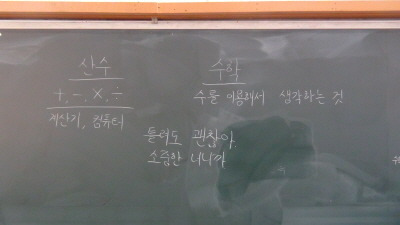 산수
수학
+, -, ×, ÷
수를 이용해서 생각하는 것
계산기, 컴퓨터
틀려도 괜찮아.
소중한 너니까